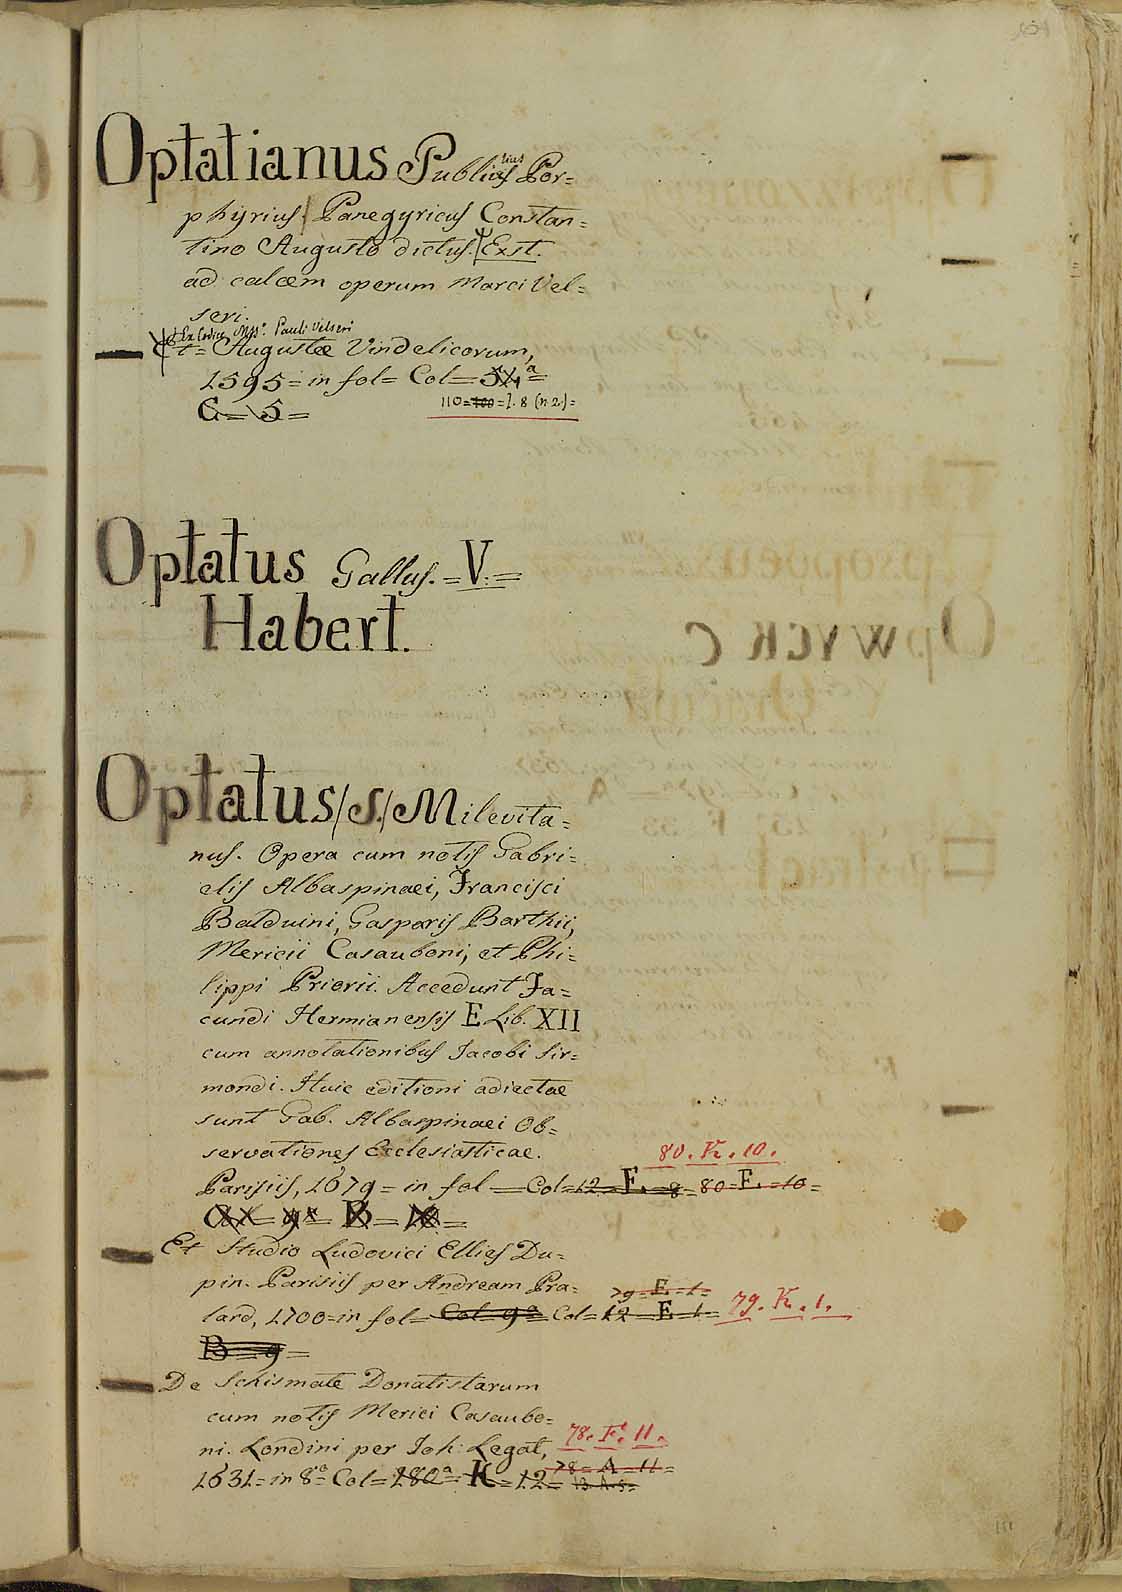 Optatianus Publius Por=
lius
phyrius. Panegyricus Constan=
tino Augusto dictus. Exst.
ad calcem operum Marci Vel=
seri.
Ex Codice Mss.º Pauli Velseri
Et= Augustae Vindelicorum,
1595= in fol= Col=
110= = J. 8 (n 2)=
C= 5=
Optatus Gallus. =V.=
Habert.
Optatus /S./ Milevita=
nus. Opera cum notis Gabri=
elis Albaspinaei, Francisci
Balduini, Gasparis Barthii,
Mericii Casauboni, et Phi=
lippi Priorii. Accedunt Fa=
cundi Hermianensis E Lib. XII
cum annotationibus Jacobi Sir=
mondi. Huic editioni adiectae
sunt Gab. Albaspinaei Ob=
servationes Ecclesiasticae.
80. K. 10.
Parisiis, 1679= in fol= Col=12= F. =8= 80=F.=10=
B=
Et Studio Ludovici Ellies Du=
pin. Parisiis per Andream Pra=
79= E=1=
lard, 1700=in fol= Col= 9ª= Col=12= E=1= 79. K. 1.
B= 9=
De Schismate Donatistarum
cum notis Merici Casaubo=
ni. Londini per Joh: Legat, 78. F. 11.
78= A=11=
1631= in 8º= Col=180ª= K=12= 13. A. 5=